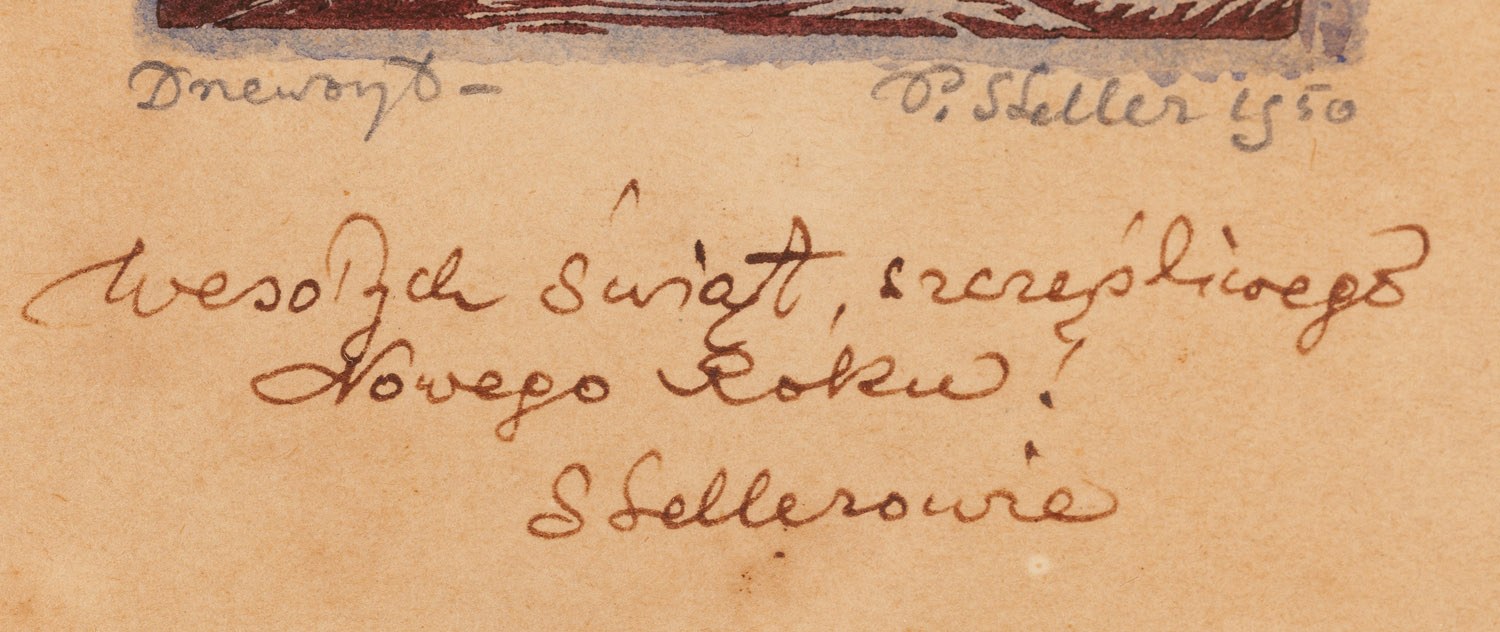 Drzeworyt - P. Steller 1950
Wesołych Świąt, szczęśliwego
Nowego Roku!
Stellerowie